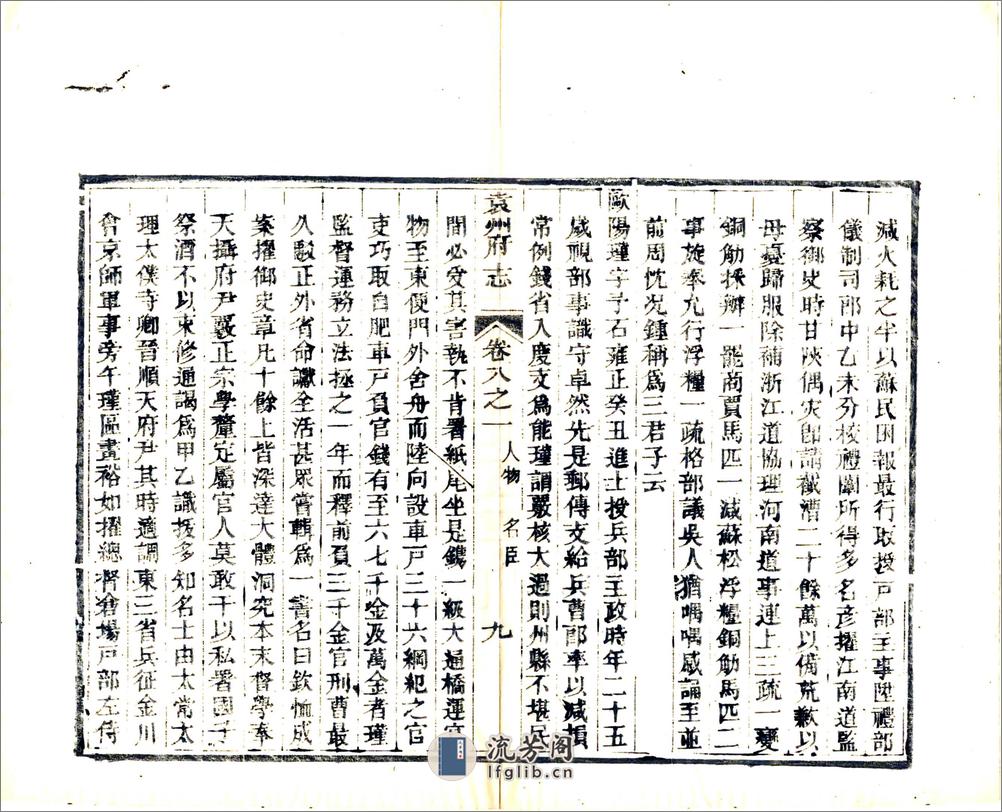 減火耗之半以蘇民困報最行取授戸部主事陞禮部
儀制司郎中乙未分校禮闈所得多名彦擢江南道監
察御史時甘陝偶灾卽請截漕二十餘萬以備荒歉以
母憂歸服除補浙江道協理河南道事連上三疏一變
銅觔採辦一罷商賈馬匹一減蘇松浮糧銅觔馬匹二
事旋奉允行浮糧一疏格部議吳人猶喁喁感誦至並
前周忱况鍾稱爲三君子云
歐陽瑾字子石雍正癸丑進士授兵部主政時年二十五
歲視部事識守卓然先是郵傳支給兵曹郎率以減損
常例錢省入度支爲能瑾謂嚴核大過則州縣不堪民
袁州府志 卷八之一 人物 名臣 九
間必受其害執不肯署紙尾坐是鐫一級大通橋運官
物至東便門外舍舟而陸向設車戸三十六綱紀之官
吏巧取自肥車戸負官錢有至六七千金及萬金者瑾
監督運務立法拯之一年而釋前負三千金官刑曹最
久駁正外省命讞全活甚眾嘗輯爲一書名曰欽恤成
案擢御史章凡十餘上皆深達大體洞究本末督學奉
天攝府尹㕘正宗學釐定屬官人莫敢干以私署國子
祭酒不以束修通謁爲甲乙識拔多知名士由太常太
理太僕寺卿晉順天府尹其時適調東三省兵征金川
會京師軍事旁午瑾區畫裕如擢總督倉場戸部左侍
流芳阁
lfglib.cn